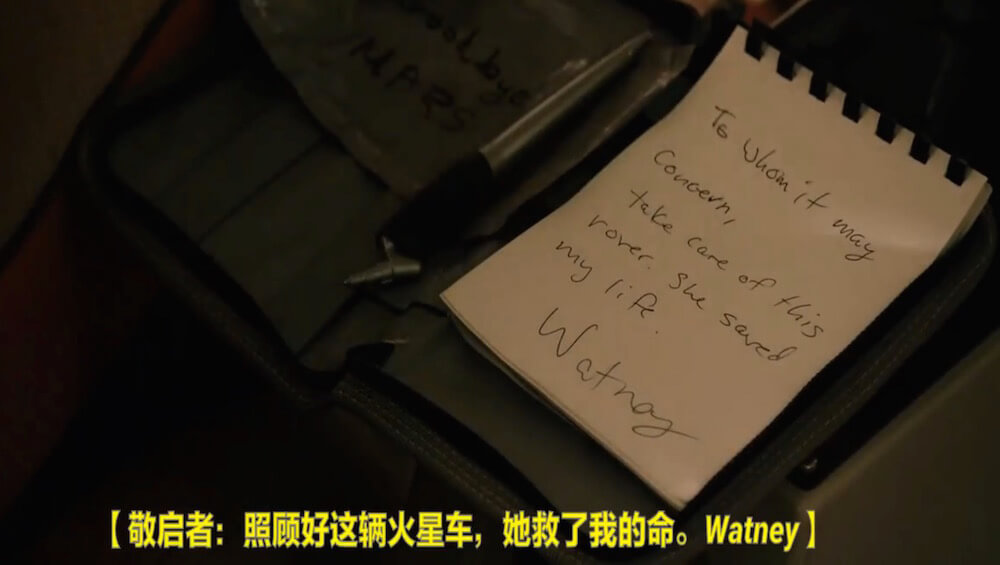 Goodbye
MARS
To whom it may
concern,
take care of this
rover. She saved
my life.
Watney
【敬启者：照顾好这辆火星车，她救了我的命。Watney】